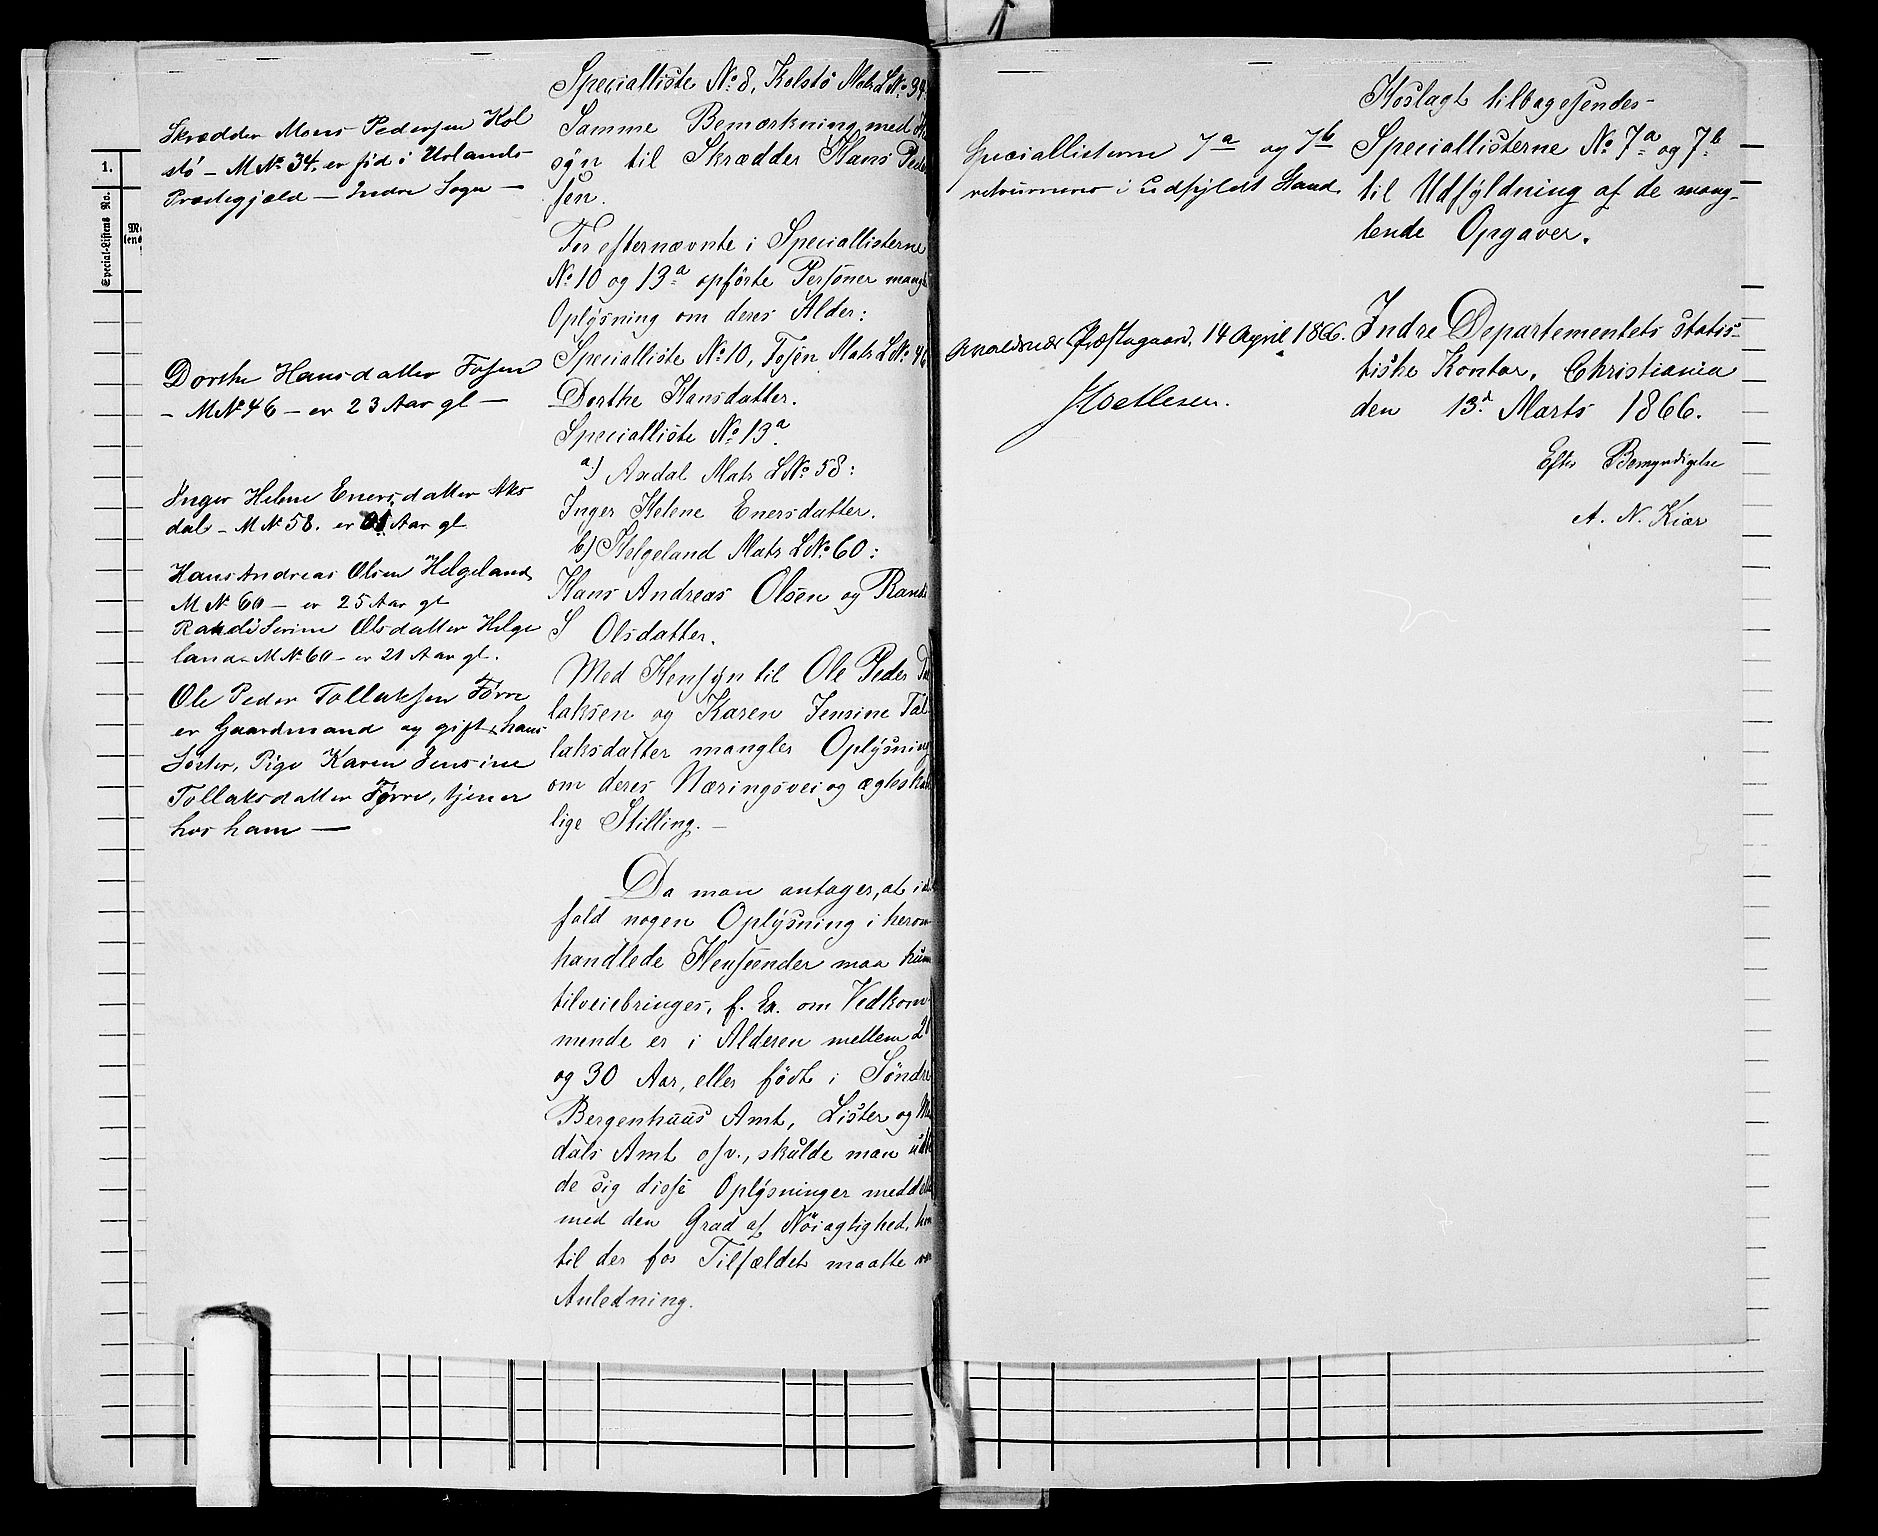 1.
Special-Listens No.
Skrædder Mons Pedersen Kol
stö – M№ 34. er föd i Urlands
Præstegjæld – Indre Sogn –
Dorthe Hansdatter Fosen
– M№ 46 – er 23 Aar gl –
Inger Helene Enersdatter Aks
dal – M№ 58. er Aar gl
Hans Andreas Olsen Helgeland
M№ 60 – er 25 Aar gl
Randi Serine Olsdatter Helge
land – M№ 60 – er 21 Aar gl.
Ole Peder Tollaksen Førre
er Gaardmand og gift, hans
Søster, Pige Karen Jensine
Tollaksdatter Førre, tjener
hos ham –
Specialliste № 8, Kolstö Matr L№ 34
Samme Bemærkning med
syn til Skrædder Hans Peder
sen.
For efternævnte i Speciallisterne
№ 10 og 13a opförte Personer mangl
Oplysning om deres Alder:
Specialliste № 10, Fosen Matr L№ 46
Dorthe Hansdatter.
Specialliste № 13a.
a) Axdal Matr L№ 58:
Inger Helene Enersdatter.
b) Helgeland Matr L№ 60:
Hans Andreas Olsen og Randi
S Olsdatter.
Med Hensyn til Ole Peder Tol
laksen og Karen Jensine Tol
laksdatter mangler Oplysning
om deres Næringsvei og ægteskab
lige Stilling. –
Da man antager, at i
fald nogen Oplysning i herom
handlede Henseender maa kun
tilveiebringes, f. Ex. om Vedkom
mende er i Alderen mellem 20
og 30 Aar, eller födt i Söndre
Bergenhuus Amt, Lister og
dals Amt osv., skulde man udb
de sig disse Oplysninger meddel
med den Grad af Nöiagtighed, hvor
til der for Tilfældet maatte
Anledning.
Speciallisterne 7a og 7b
returneres i udfyldt Stand.
Avaldsnæs Præstegaard, 14 April 1866.
Koslagt tilbagesendes
Speciallisterne № 7a og 7b
til Udfyldning af de mang-
lende Opgaver.
Indre Departementets statis-
tiske Kontor, Christiania
den 13d Marts 1866.
Efter Bemyndigelse
A. N. Kiær